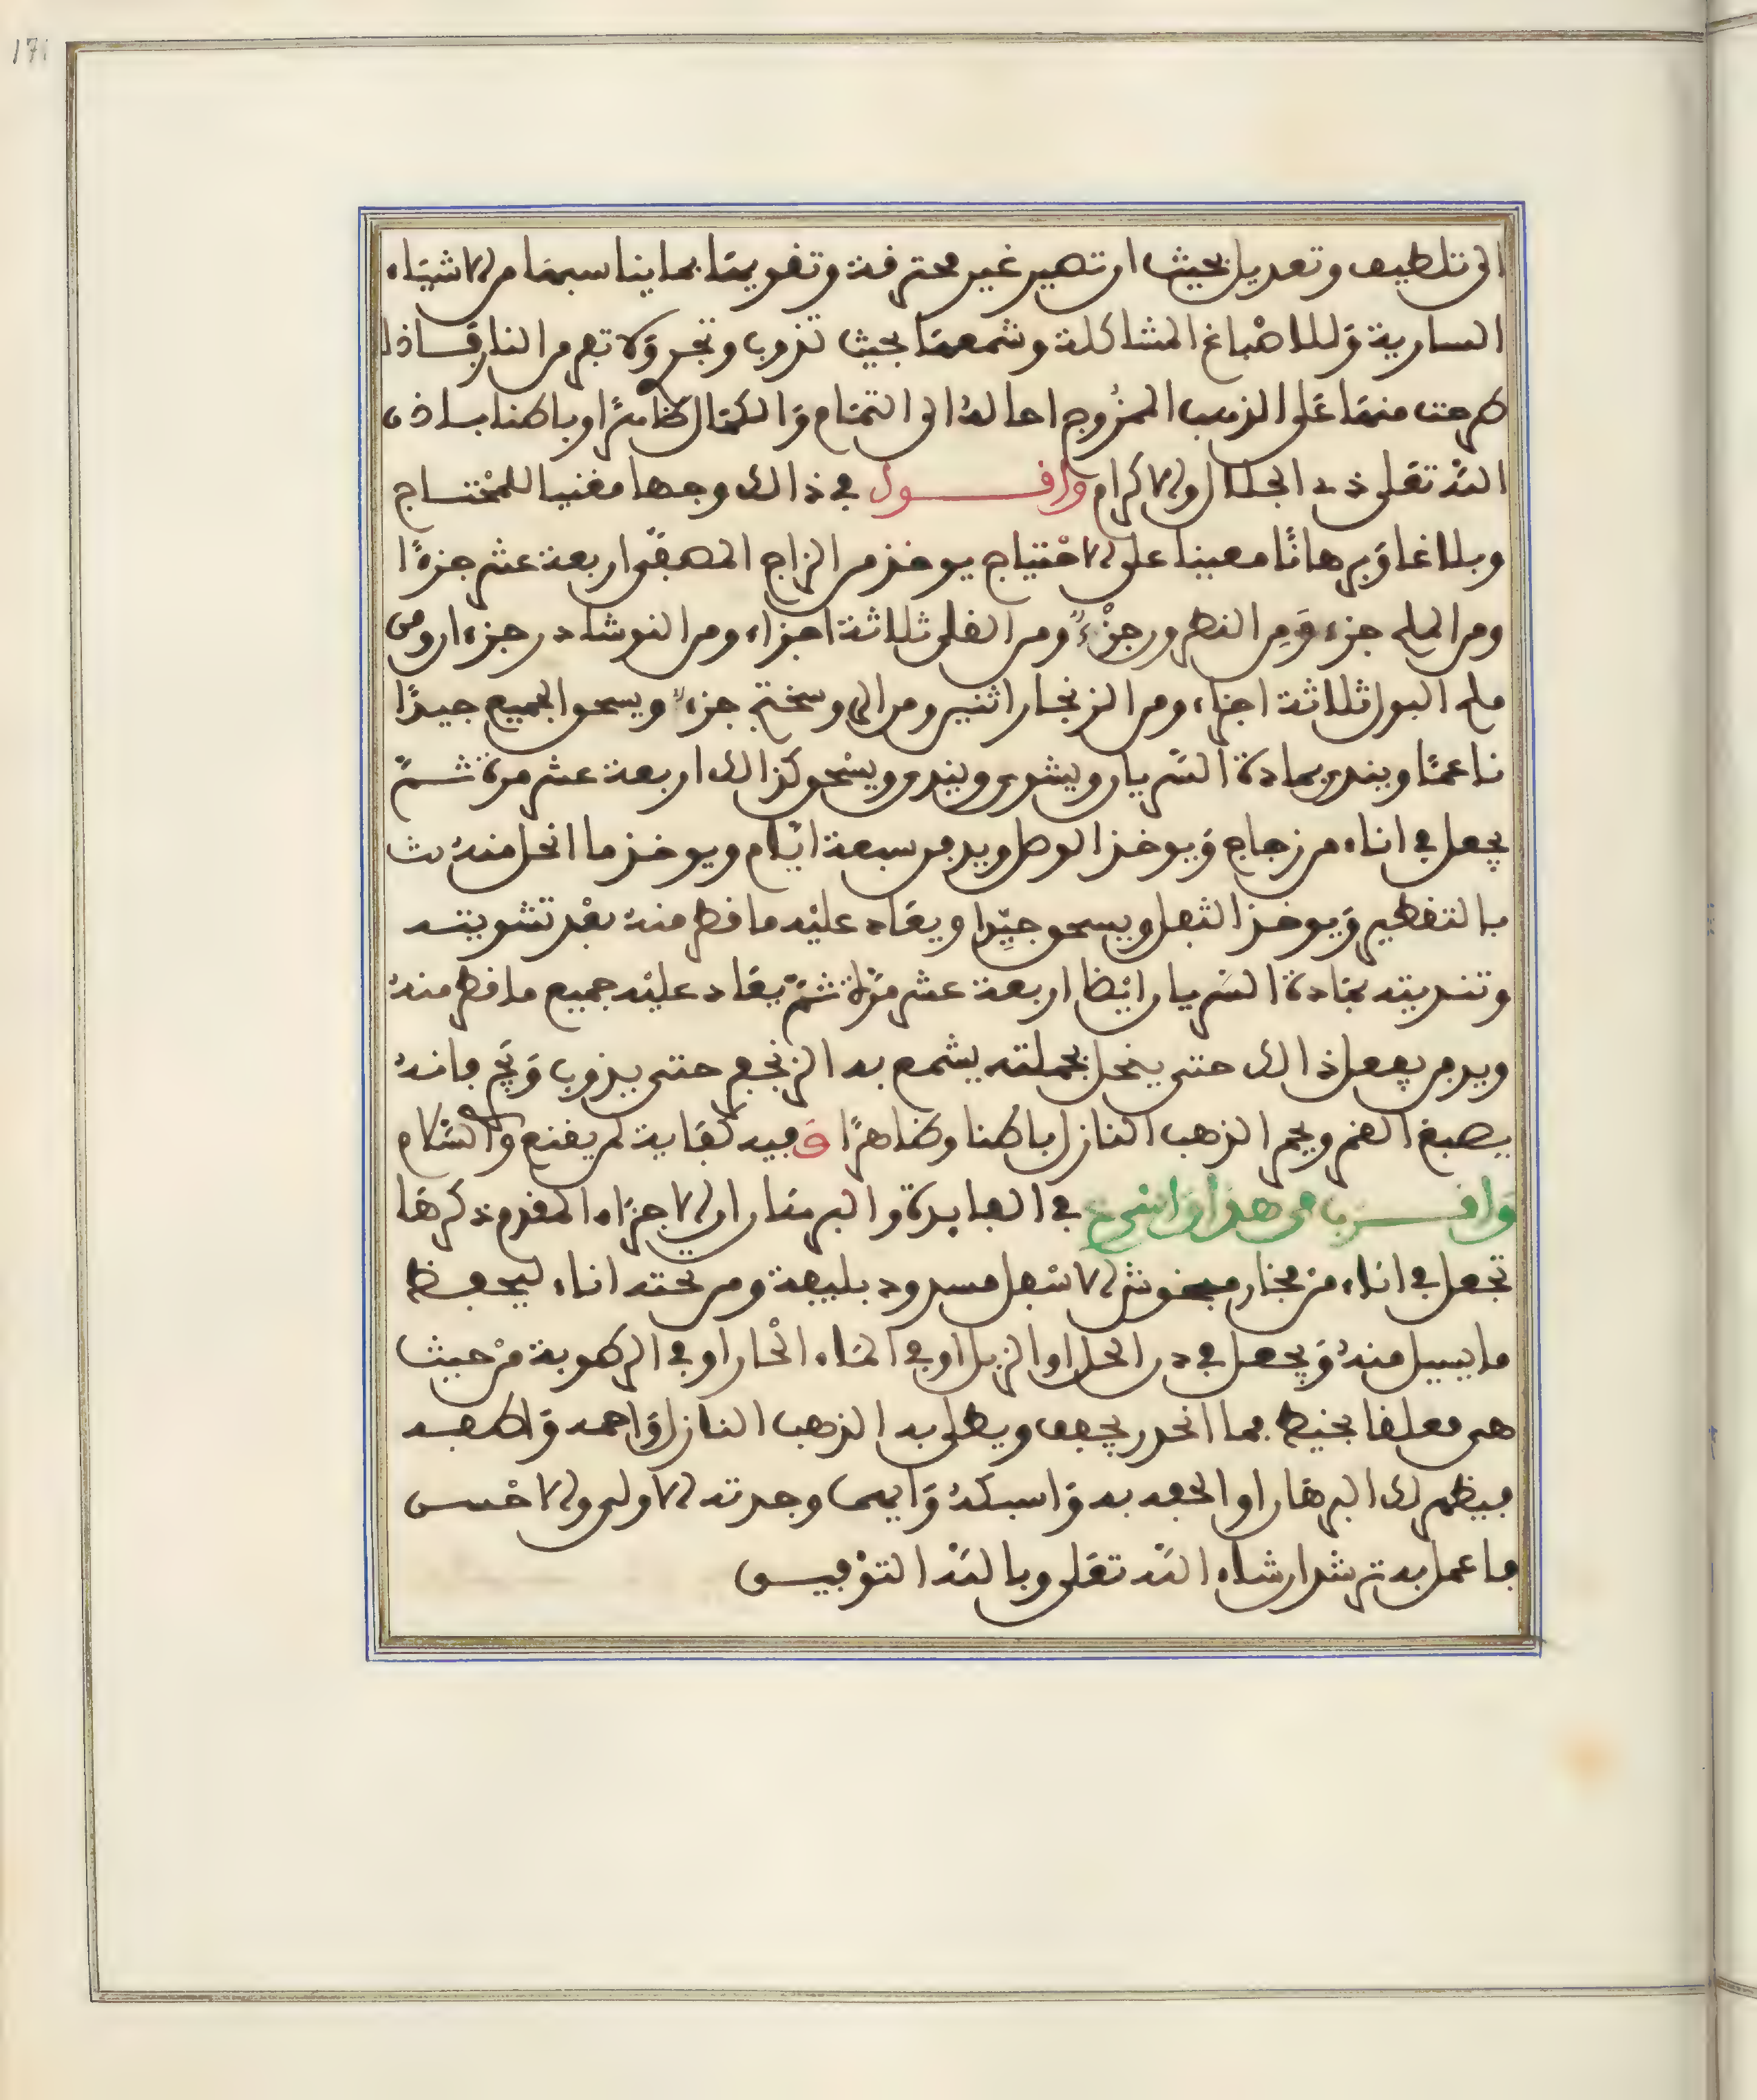 171
الى تلطيف وتعديل بحيث ان تصير غير محترقة وتقويمها بما يناسبها من الاشياء
السارية وللاصباغ المشاكلة وشمعها بحيث تذوب وتجر ولا تفر من النار فاذا
طرحت منها على الذهب الممزوج احاله الى التمام والكمال ظاهرًا وباطنا باذن
الله تعلى ذى الجلال والاكرام وافول في ذالك وجها مغنيا للمحتاج
وبلاغا وبرهانًا معينا على الاحتياج يوخذ من الزاج المصفى اربعة عشر جزءًا
ومن الملح جزء ومن النطرون جزءٌ ومن القلى ثلاثة اجزاء ومن النوشادر جزءان ومن
ملح البول ثلاثة اجزاء ومن الزنجار اثنين ومن الروسختج جزءٌ ويسحق الجميع جيدًا
ناعمًا ويندى بمادة السريان ويشوى ويندى ويسحق كذالك اربعة عشر مرة ثمّ
يجعل في اناء من زجاج ويوخذ الوصل ويدفن سبعة ايّام ويوخذ ما انحل منه
بالتقطير ويوخذ الثفل ويسحق جيّدا ويعاد عليه ما قطر منه بعد تشويته
وتنديته بمادة السريان ايضا اربعة عشر مرّة ثمّ يعاد عليه جميع ما قطر منه
ويدفن يفعل ذالك حتى ينحل بجملته يشمع به الزنجفر حتى يذوب ويجر فانه
يصبغ القمر ويحمر الذهب النازل باطنا وظاهرًا وفيه كفاية لمن يقنع والسلام
وافرب من هذا وانفع في الفايدة والبرهان ان الاجزاء المقدم ذكرها
تجعل في اناء من فخار منقوش الاسفل مسدود بليفة ومن تحته اناء ليحفظ
ما يسيل منه ويجعل في دن الخل او الزبل او في الماء الحار او في الرطوبة من حيث
هى معلقا بخيط فما انحدر يجفف ويطلى به الذهب النازل واحمه واطفه
فيظهر لك البرهان او الحقه به واسبكه وايهما وجدته الاولى والاحسن
فاعمل به ترشد ان شاء الله تعلى وبالله التوفيق